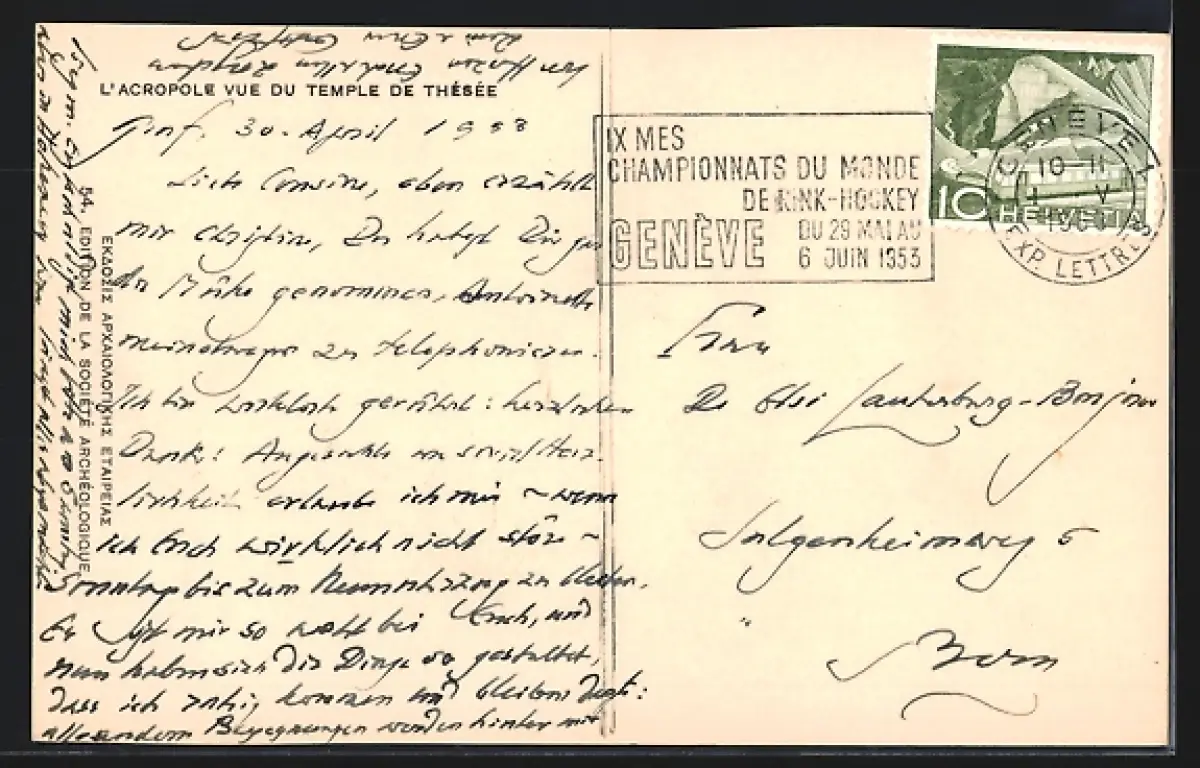 L'ACROPOLE VUE DU TEMPLE DE THÉSÉE
Genf. 30. April 1953
Liebe Cousine, eben erzählt
mir Christine, Du habest Dir gar
die Mühe genommen, Antoinette
meinetwegen zu telephonieren.
Ich bin wirklich gerührt: herzlichen
Dank! Angesichts von soviel Herz-
lichkeit erlaube ich mir ~ wenn
ich Euch wirklich nicht störe ~
Sonntag bis zum Neunuhrzug zu bleiben.
Es ist mir so wohl bei Euch, und
nun haben sich die Dinge so gestaltet,
dass ich ruhig kommen und bleiben darf:
alle andern Begegnungen werden hinter mir
54. EDITION DE LA SOCIÉTÉ ARCHÉOLOGIQUE.
ΕΚΔΟΣΙΣ ΑΡΧΑΙΟΛΟΓΙΚΗΣ ΕΤΑΙΡΕΙΑΣ
IX MES
CHAMPIONNATS DU MONDE
DE RINK-HOCKEY
GENÈVE DU 29 MAI AU
6 JUIN 1953
GENÈVE 1
10-11
EXP. LETTRES
10 HELVETIA
Frau
Dr Elsi Lauterburg-Bonjour
Sulgenheimweg 5
Bern